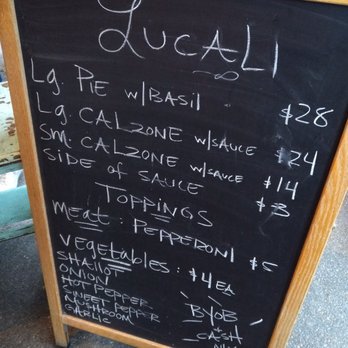 LUCALI
Lg. PIE w/BASIL $28
Lg. CALZONE w/SAUCE $24
SM. CALZONE w/SAUCE $14
SIDE OF SAUCE $3
TOPPINGS
MEAT: PEPPERONI $5
VEGETABLES: $4 EA
SHALLOT
ONION
HOT PEPPER
SWEET PEPPER
MUSHROOM
GARLIC
BYOB
+
CASH